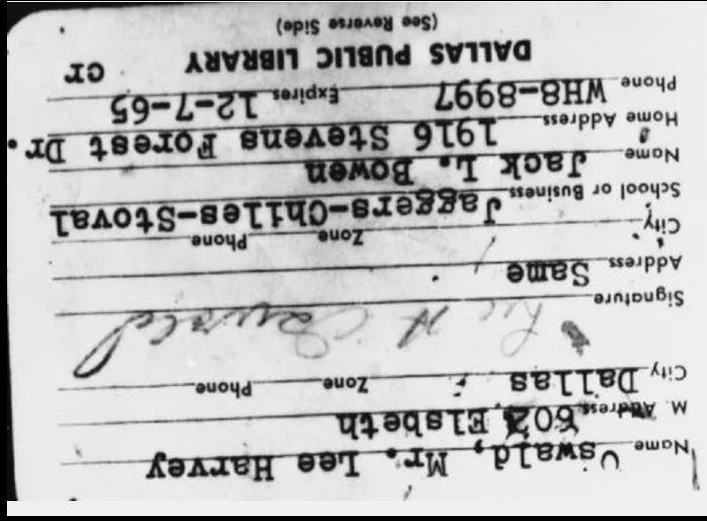 Name Oswald, Mr. Lee Harvey
M. Address 602 Elsbeth
City Dallas Zone Phone
Signature Lee H Oswald
Address Same
City Zone Phone
School or Business Jaggers-Chiles-Stoval
Name Jack L. Bowen
Home Address 1916 Stevens Forest Dr.
Phone WH8-8997 Expires 12-7-65
DALLAS PUBLIC LIBRARY cr
(See Reverse Side)